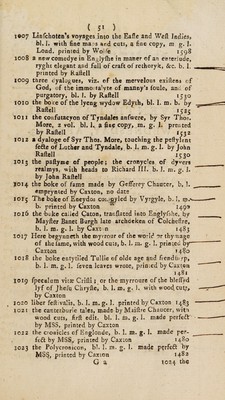 ( 51 )
1007 Linschoten's voyages into the Easte and West Indies,
bl. l. with fine maps and cuts, a fine copy, m. g. l.
Lond. printed by Wolfe 1598
1008 a new comedye in Englyshe in maner of an enterlude,
ryght elegant and full of craft of rethoryk, &c. b. l
printed by Rastell
1009 three dyalogues, viz. of the mervelous existens of
God, of the immortalyte of mannys soule, and of
purgatory, bl. l. by Rastell 1530
1010 the boke of the lyeng wydow Edyth, bl. l. m. b. by
Rastell 1525
1011 the confutacyon of Tyndales answere, by Syr Tho.
More, 2 vol. bl. l. a fine copy, m. g. l. printed
by Rastell 1532
1012 a dyaloge of Syr Tho. More, touching the pestylent
secte of Luther and Tyndale, b. l. m. g. l. by John
Rastell 1530
1013 the pastyme of people; the cronycles of dyvers
realmys, with heads to Richard III. b. l. m. g. l.
by John Rastell
1014 the boke of fame made by Gefferey Chaucer, b. l.
emprynted by Caxton, no date
1015 The boke of Eneydos compyled by Vyrgyle, b. l. m.
b. printed by Caxton 1490
1016 the boke called Caton, translated into Englysshe, by
Mayster Banet Borgh late archeaken of Colchestre,
b. l. m. g. l. by Caxton 1483
1017 Here begynneth the myrrour of the world or thymage
of the same, with wood cuts, b. l. m. g. l. printed by
Caxton 1480
1018 the boke entytilled Tullie of olde age and friendship,
b. l. m. g. l. seven leaves wrote, printed by Caxton
1481
1019 speculum vitæ Cristi; or the myrroure of the blessyd
lyf of Jhesu Chryste, b. l. m. g. l. with wood cuts,
by Caxton
1020 liber festivalis, b. l. m. g. l. printed by Caxton 1483
1021 the canterburie tales, made by Maistre Chaucer, with
wood cuts, first edit. bl. l. m. g. l. made perfect
by MSS, printed by Caxton
1022 the cronicles of Englonde, b. l. m. g. l. made per-
fect by MSS, printed by Caxton 1480
1023 the Polycronicon, bl. l. m. g. l. made perfect by
MSS, printed by Caxton 1482
G 2
1024 the